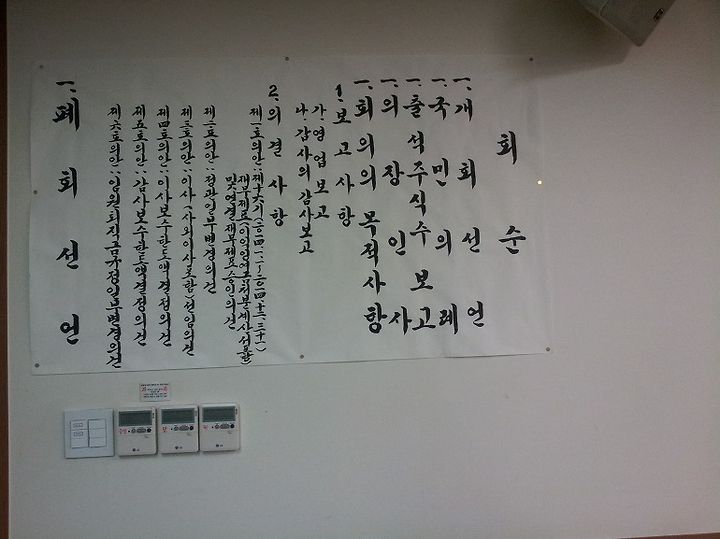 회 순
一. 개 회 선 언
一. 국 민 의 례
一. 출석주식수 보고
一. 의 장 인 사
一. 회의의 목적사항
1. 보고사항
가. 영업보고
나. 감사의 감사보고
2. 의 결 사 항
제一호의안 : 제十六기(二〇一四.一.一~二〇一四.十二.三十一)
재무제표(이익잉여금처분계산서포함)
및 연결재무제표 승인의 건
제二호의안 : 정관 일부 변경의 건
제三호의안 : 이사(사외이사포함)선임의 건
제四호의안 : 이사보수한도액 결정의 건
제五호의안 : 감사보수한도액 결정의 건
제六호의안 : 임원퇴직금규정 일부 변경의 건
一. 폐 회 선 언
LG
LG
LG